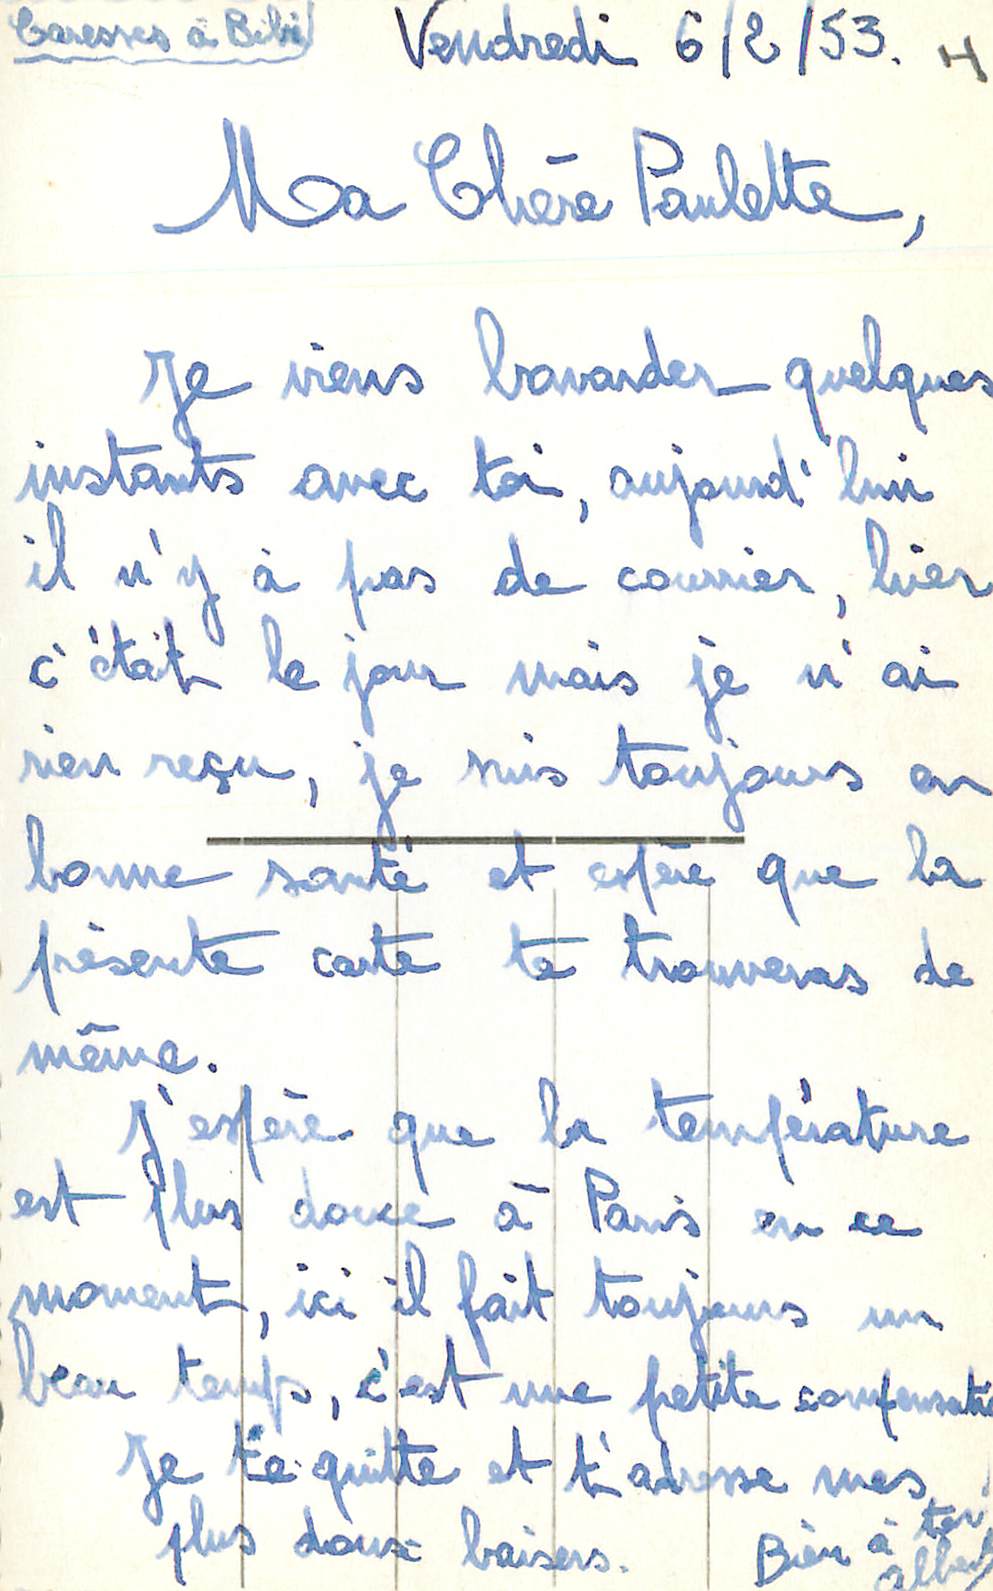 Caresses à Bibi
Vendredi 6/2/53. H
Ma Chère Paulette,
Je viens bavarder quelques
instants avec toi, aujourd'hui
il n'y à pas de courrier, hier
c'était le jour mais je n'ai
rien reçu, je suis toujours en
bonne santé et espère que la
présente carte te trouveras de
même.
J'espère que la température
est plus douce à Paris en ce
moment, ici il fait toujours un
beau temps, c'est une petite compensatio
Je te quitte et t'adresse mes
plus doux baisers. Bien à toi
Albert